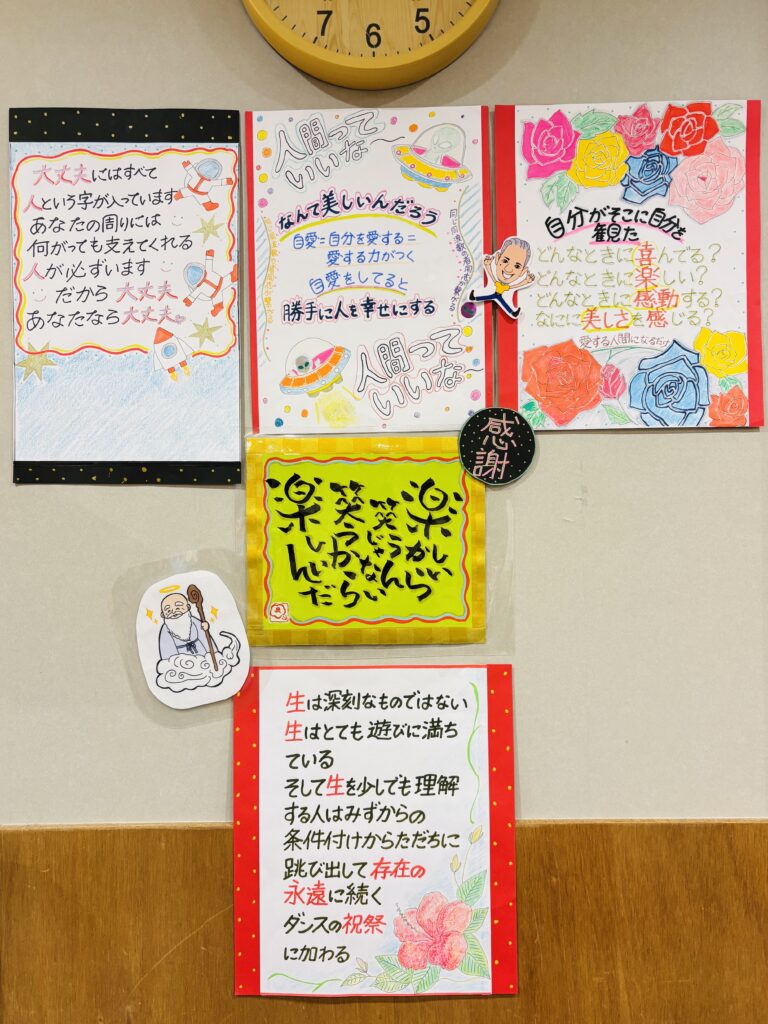 7 6 5
大丈夫にはすべて
人という字が入っています
あなたの周りには
何があっても支えてくれる
人が必ずいます
だから 大丈夫
あなたなら大丈夫
人間って
いいな
なんて美しいんだろう
自愛=自分を愛する=
愛する力がつく
自愛をしてると
勝手に人を幸せにする
人間って
いいな
自分がそこに自分を
観た
どんなときに喜んでる?
どんなときに楽しい?
どんなときに感動する?
なにに美しさを感じる?
愛する人間になるだけ
感謝
楽しい
から
笑うん
じゃない
笑うから
楽しいんだ
生は深刻なものではない
生はとても遊びに満ち
ている
そして生を少しでも理解
する人はみずからの
条件付けからただちに
跳び出して存在の
永遠に続く
ダンスの祝祭
に加わる